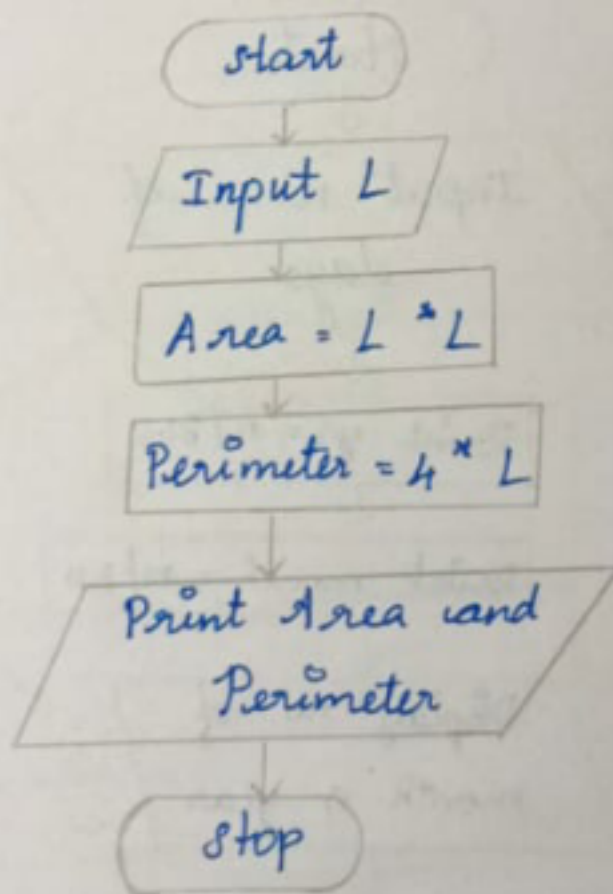 start
Input L
Area = L * L
Perimeter = 4 * L
Print Area and
Perimeter
stop